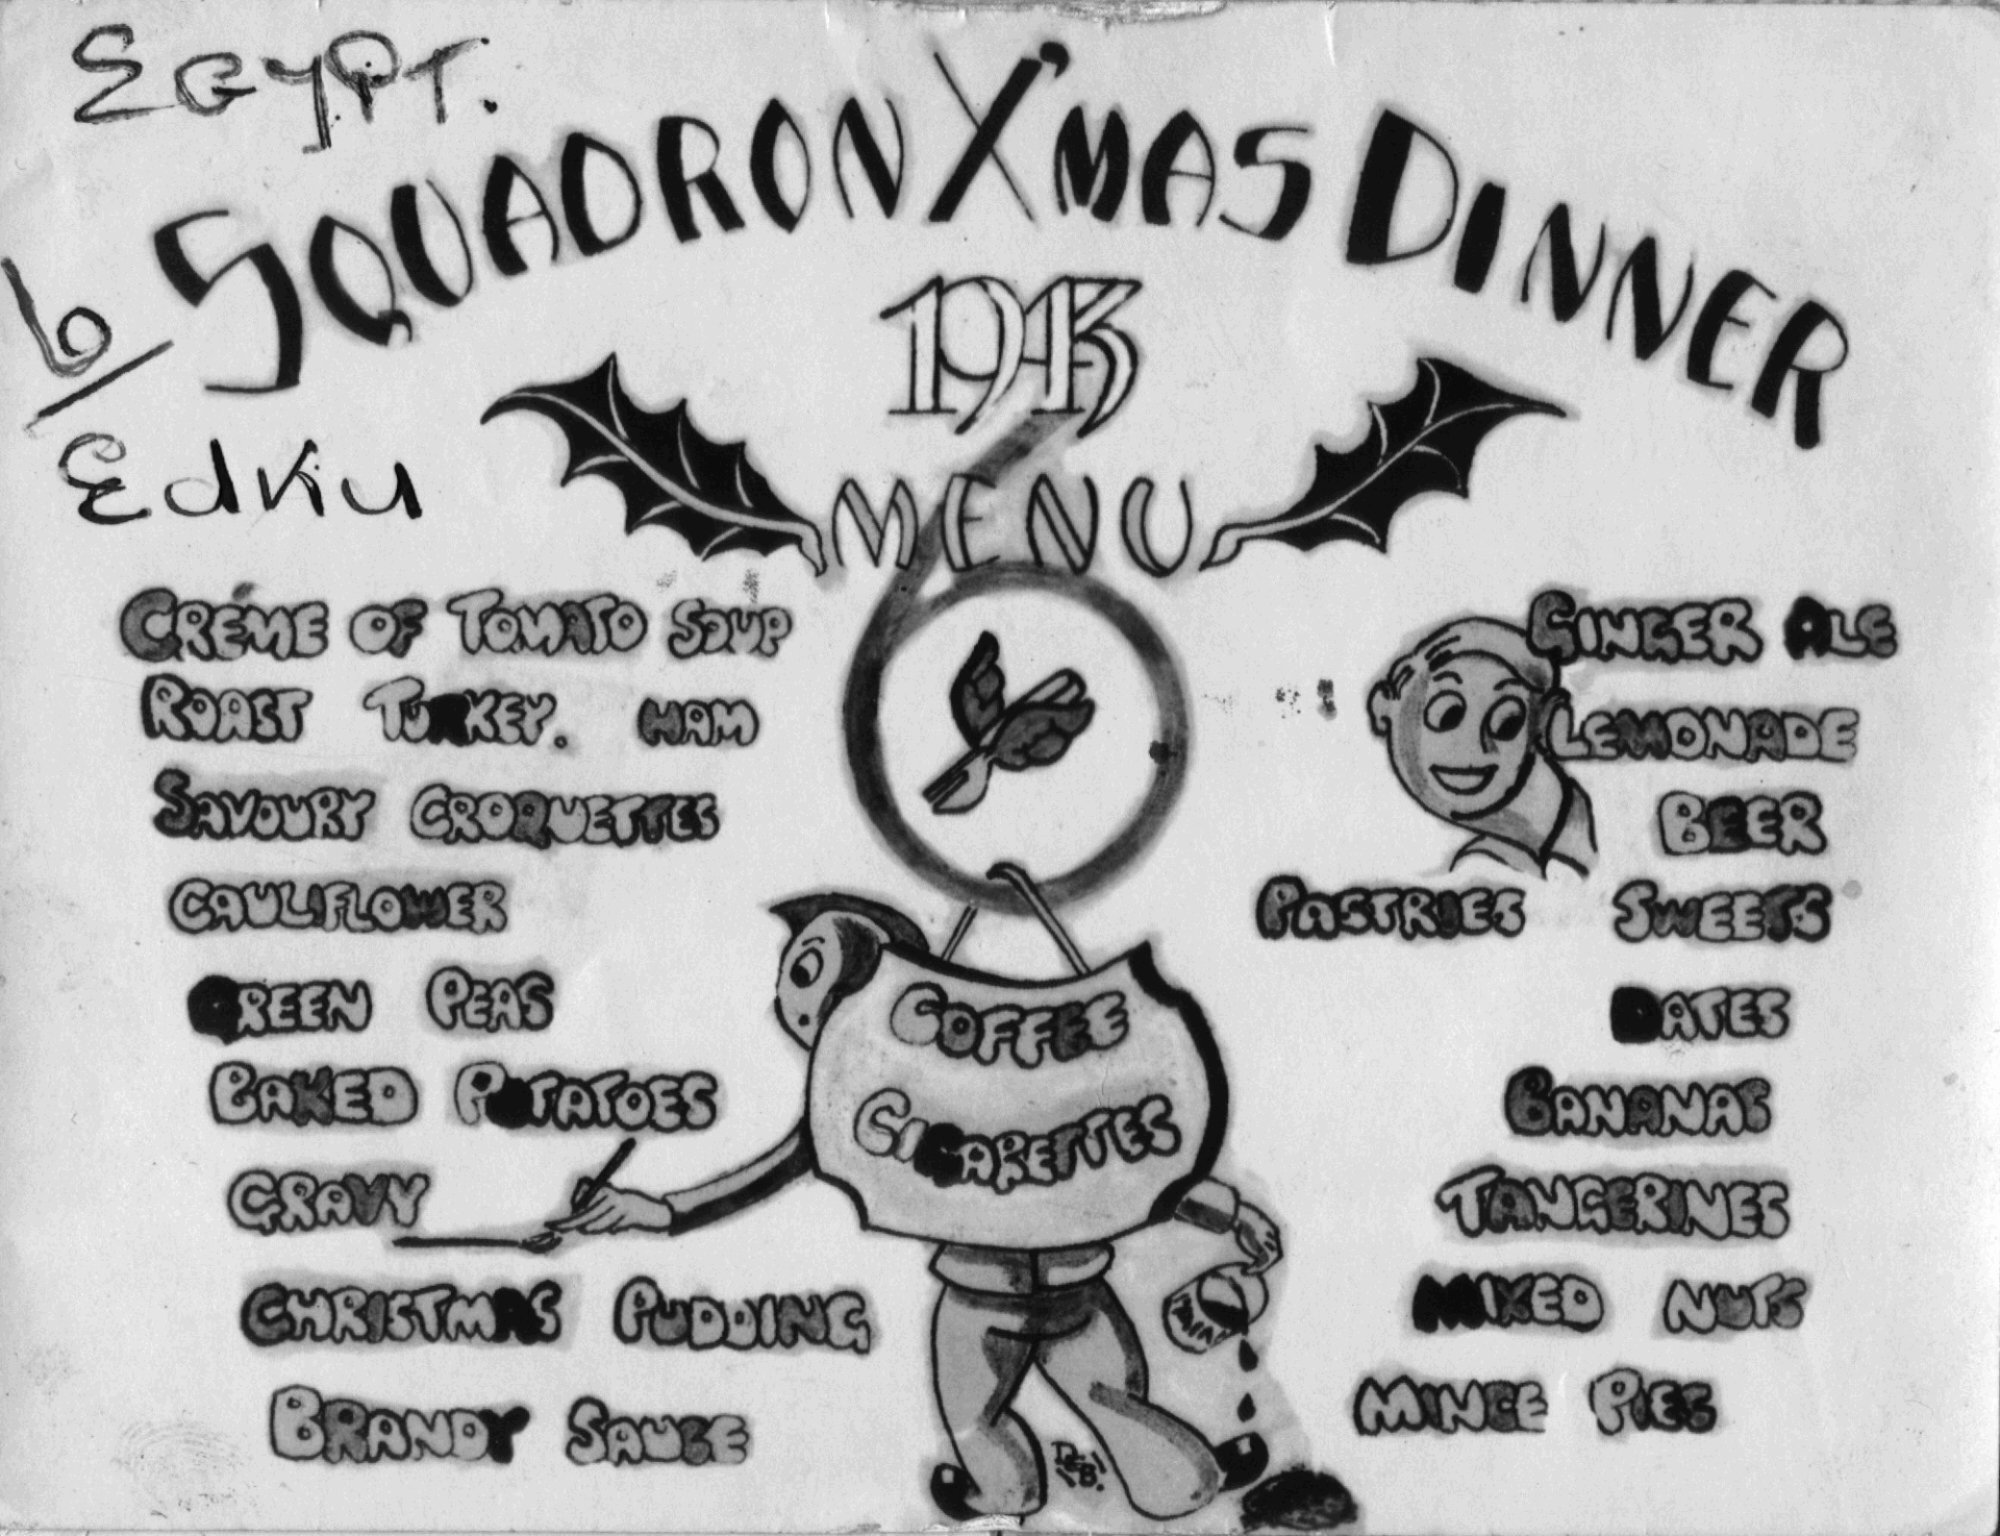 EGYPT.
6/
SQUADRON X'MAS DINNER
1943
Edku
MENU
CRÉME OF TOMATO SOUP
ROAST TURKEY. HAM
SAVOURY CROQUETTES
CAULIFLOWER
GREEN PEAS
BAKED POTATOES
GRAVY
CHRISTMAS PUDDING
BRANDY SAUCE
6
COFFEE
CIGARETTES
GINGER ALE
LEMONADE
BEER
PASTRIES SWEETS
DATES
BANANAS
TANGERINES
MIXED NUTS
MINCE PIES